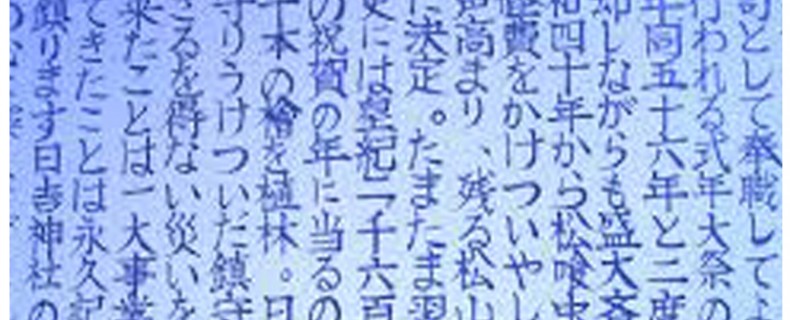 司として奉職してよ
行われる式年大祭の
年同五十六年と二度
却しながらも盛大斉
和四十年から松喰虫
経費をかけついやし
運高まり、残る松山
に決定。たまたま翌
史には皇紀二千六百
の祝賀の年に当るの
千本の檜を植林。日
守りうけついだ鎮守
ざるを得ない災いを
来たことは一大事業
てきたことは永久記
鎮ります日吉神社の